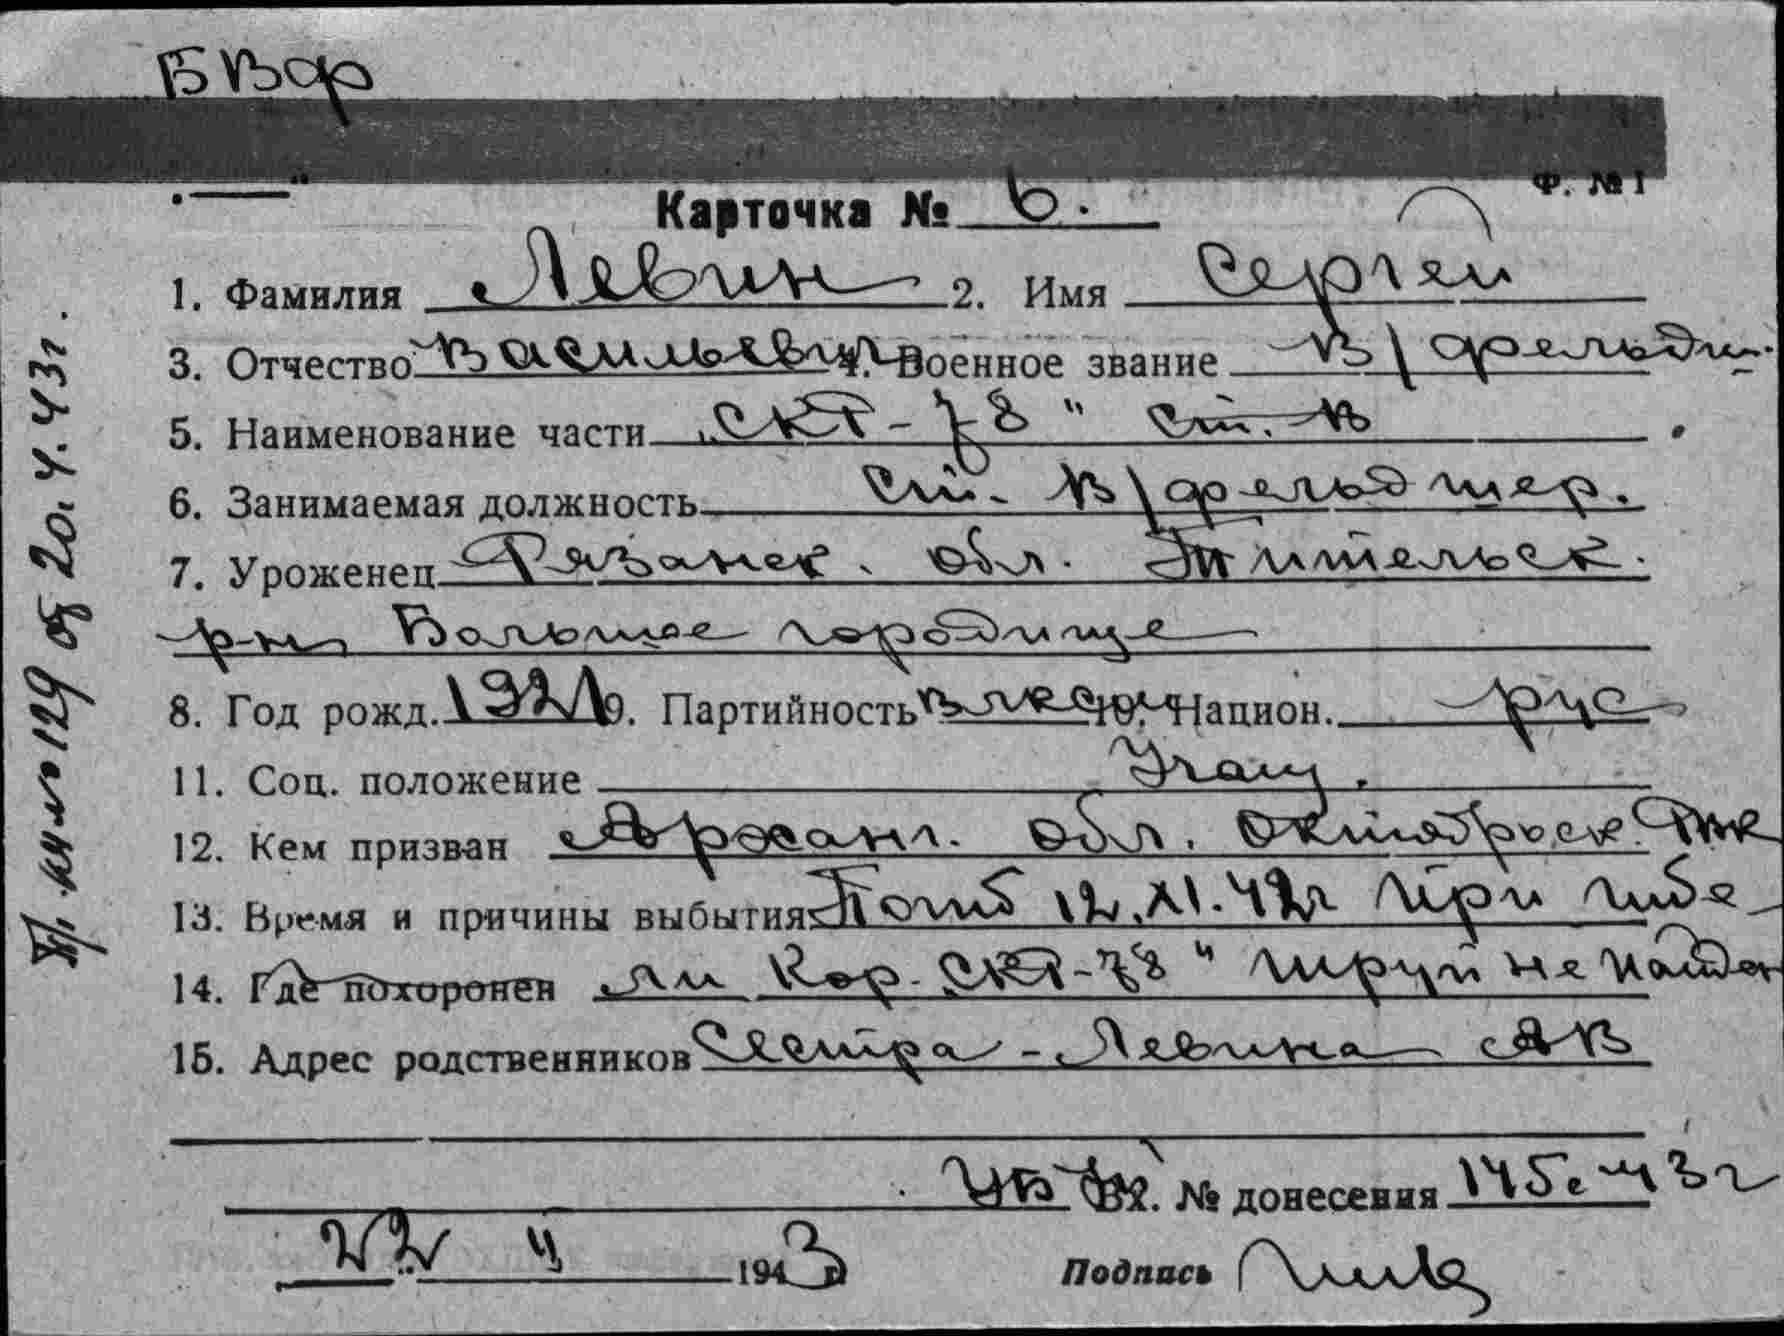 БВФ
Ф. № 1
Карточка № 6.
1. Фамилия Левин 2. Имя Сергей
3. Отчество Васильевич 4. Военное звание В/фельдш.
5. Наименование части „СКР-78" ст. В
6. Занимаемая должность Ст. В/фельдшер.
7. Уроженец Рязанск. обл. Тительск.
р-н Больше городище
8. Год рожд. 1921 9. Партийность ВЛКСМ 10. Национ. рус
11. Соц. положение Учащ.
12. Кем призван Арханг. обл. Октябрьск РВК
13. Время и причины выбытия Погиб 12.XI.42г при гибе-
14. Где похоронен ли кор. „СКР-78" труп не найден
15. Адрес родственников Сестра - Левина АВ
Вх. № донесения 145с-43г
22 4 1943
Подпись
129 от 20.4.43г.